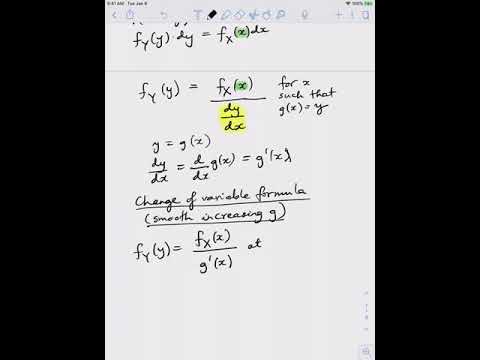 9:41 AM Tue Jan 8
100%
f_Y(y) · dy = f_X(x) dx
f_Y(y) = f_X(x) / (dy/dx) for x
such that
g(x) = y
y = g(x)
dy/dx = d/dx g(x) = g'(x)
Change of variable formula
(smooth increasing g)
f_Y(y) = f_X(x) / g'(x) at